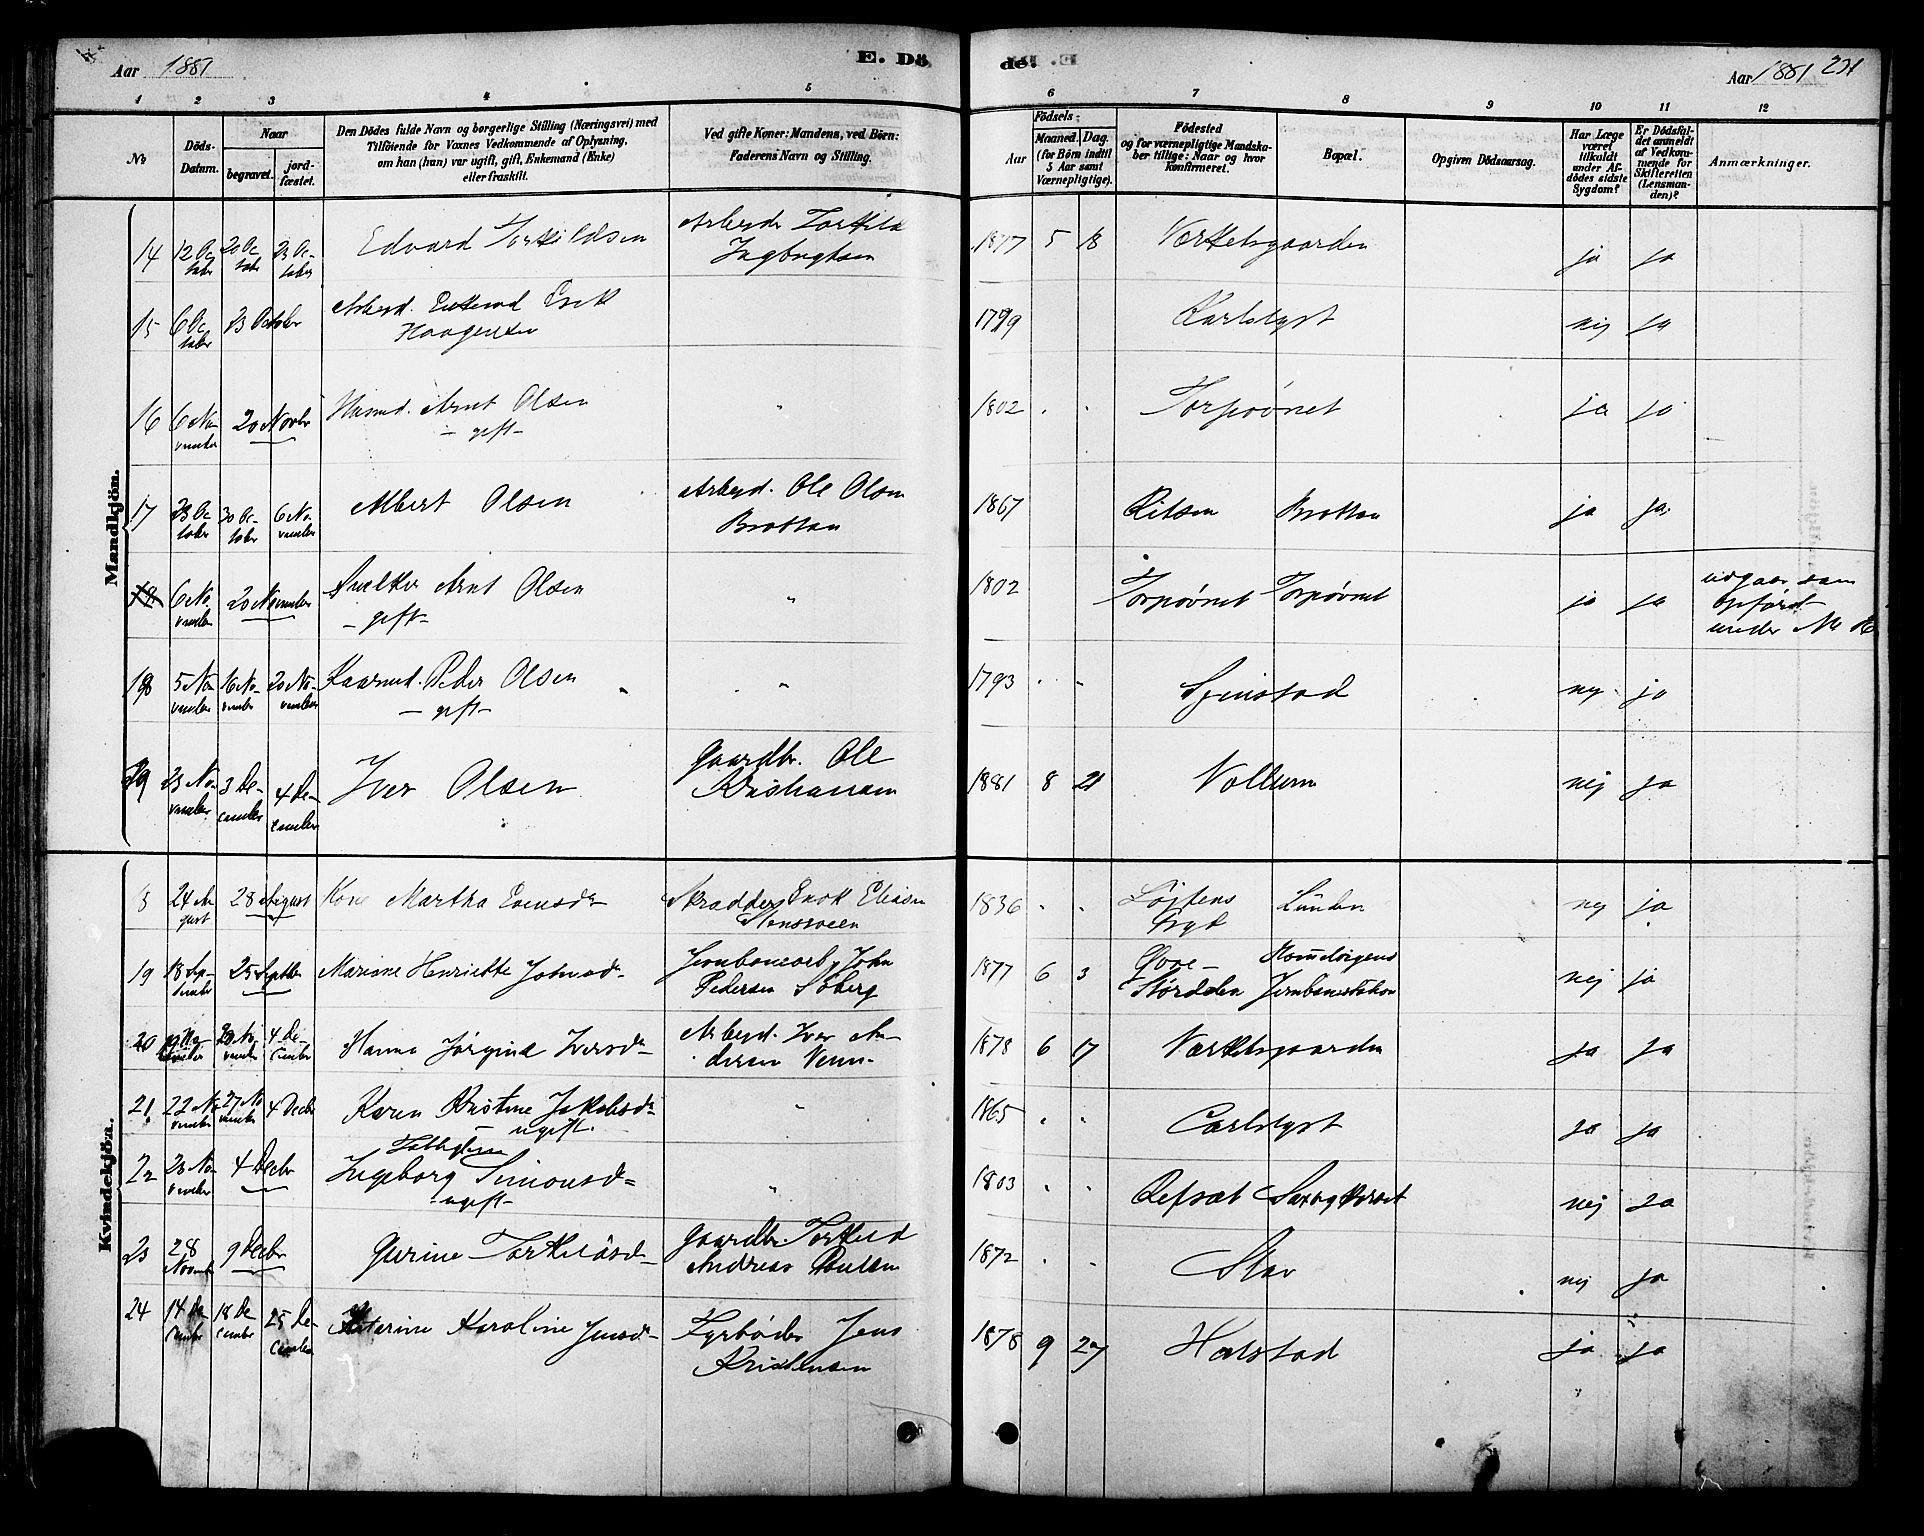 Aar 1881
E. Dö
de.
Aar 1881 231
1 2 3 4 5 6 7 8 9 10 11 12
No
Döds-
Datum.
Naar
begravet.
jord-
fæstet.
Den Dödes fulde Navn og borgerlige Stilling (Næringsvei) med
Tilföiende for Voxnes Vedkommende af Oplysning,
om han (hun) var ugift, gift, Enkemand (Enke)
eller fraskilt.
Ved gifte Koner: Mandens, ved Börn:
Faderens Navn og Stilling.
Födsels-
Aar
Maaned. Dag.
(for Börn indtil
5 Aar samt
Værnepligtige).
Födested
og for værnepligtige Mandska-
ber tillige: Naar og hvor
Konfirmeret.
Bopæl.
Opgiven Dödsaarsag.
Har Læge
været
tilkaldt
under Af-
dödes sidste
Sygdom?
Er Dödsfal-
det anmeldt
af Vedkom-
mende for
Skifteretten
(Lensman-
den)?
Anmærkninger.
Mandkjön.
14 12 Oc- tober 20 Oc- tober 23 Oc- tober Edvard Torkildsen Arbeyd. Torkild
Ingbrigtsen 1877 5 18 Værkelsgaarden ja ja
15 6 Oc- tober 23 October Arbeyd. Enkemd Erik
Haagensen 1799 Karlslyst nej ja
16 6 No- vember 20 Novbr Husmd. Arnt Olsen
- gift - " 1802 " " Torpvönet ja ja
17 23 Oc- tober 30 Oc- tober 6 No- vember Albert Olsen Arbeyd. Ole Olsen
Brattan 1867 Ritsen Brattan ja ja
18 6 No- vember 20 November Arnt Olsen
- gift - " 1802 Torpvönet Torpvönet ja ja udgaar som
opført
under No 16
18 5 No- vember 16 No- vember 20 No- vember Kaarmd. Peder Olsen
- gift - " 1793 " " Sjinstad nej ja
19 23 No- vember 3 De- cember 4 De- cember Iver Olsen Gaardbr. Ole
Kristiansen 1881 8 21 Vollum nej ja
Kvindekjön.
24 Au- gust 28 August Kone Martha Evensdr Skrædder Enok Eliasen
Stensveen 1836 " " Lojtens
Prgt Lunden nej ja
19 18 Sep- tember 25 Septbr Mariane Henriette Johnsdr Jernbanearb. John
Pedersen Söberg 1877 6 3 Övre-
Störedalen Rommelsigens
Jernbanestation nej ja
20 19 No- vember 4 De- cember Hanna Jörgine Iversdr Arbeyd. Iver An-
dersen Venn 1878 6 17 Værkelsgaarden ja ja
21 22 No- vember 27 No- vember 4 Decbr Karen Kristine Jakobsdr
- ugift. " 1865 " " Carlslyst ja ja
22 23 No- vember 4 Decbr
Ingeborg Simonsdr
- ugift - " 1803 " " Refsæt nej ja
23 28 Novemb 9 Decbr Gurine Torkildsdr Gaardbr. Torkild
Andreas Paulsen 1872 " Slav nej ja
24 14 De- cember 18 De- cember 25 De- cember Katerine Karoline Jensdr Fyrböder Jens
Kristensen 1878 9 27 Halstad ja ja